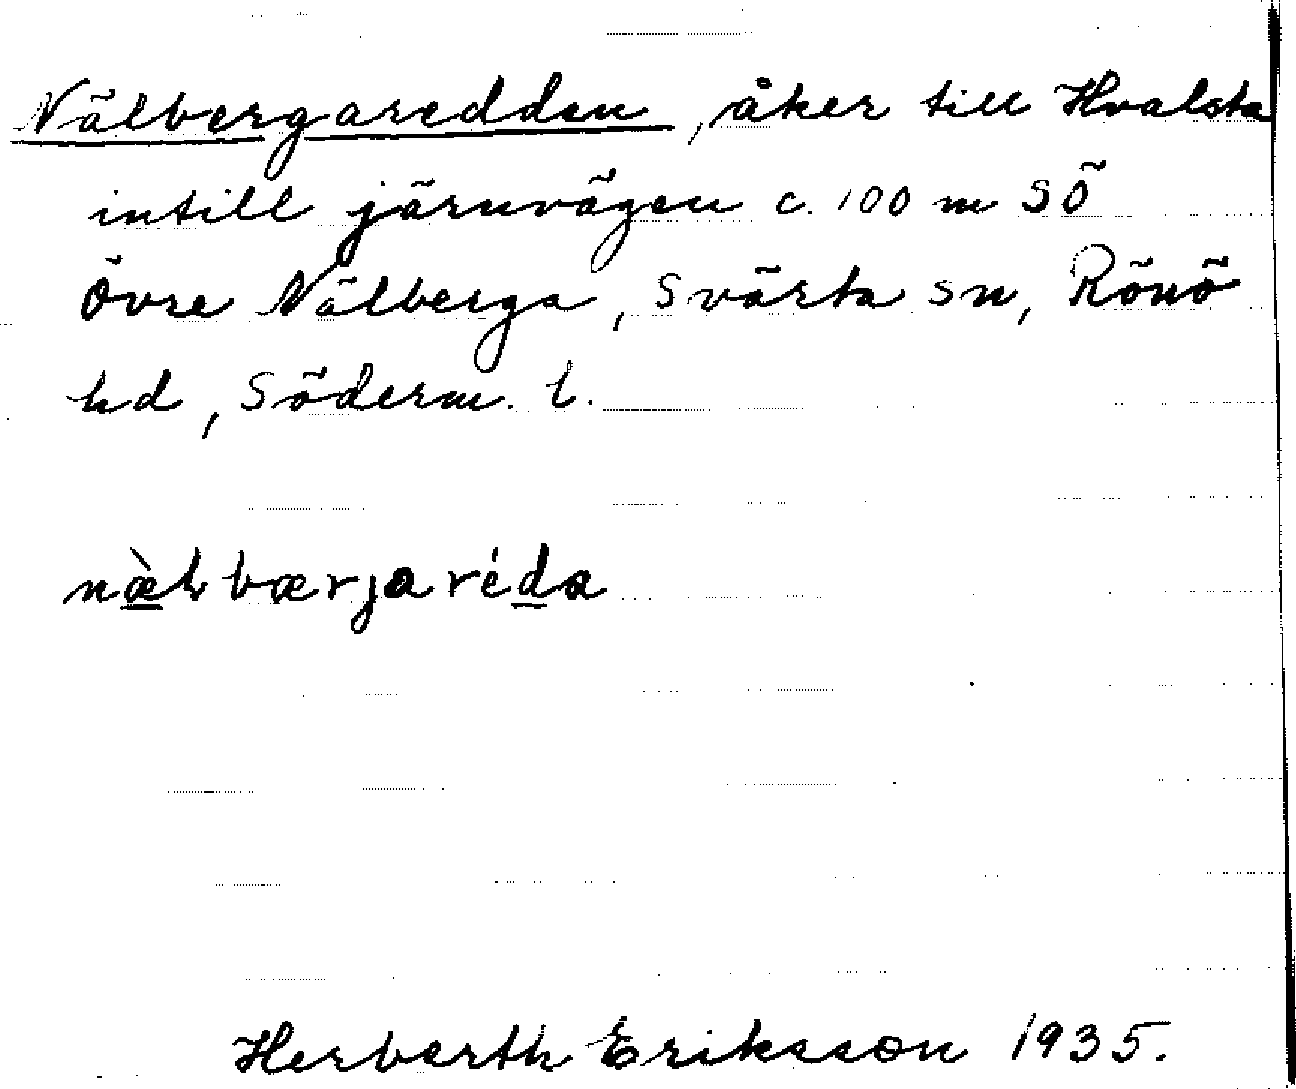 Nälbergaredden, åker till Hvalsta
intill järnvägen c. 100 m SÖ
Övre Nälberga, Svärta sn, Rönö
hd, Söderm. l.
næ̀ɫbærjaréda
Herberth Eriksson 1935.